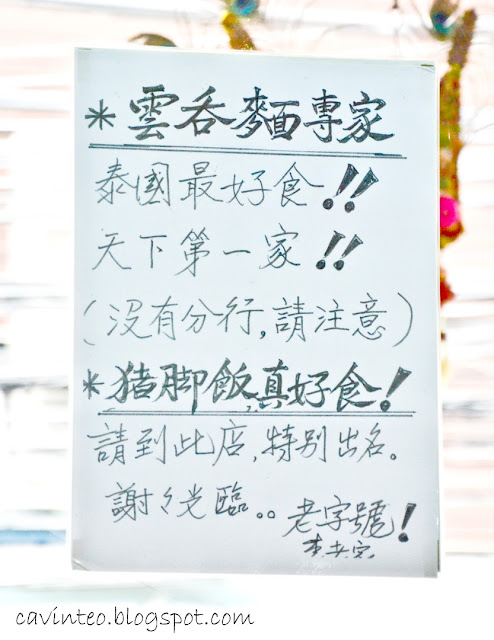 *雲吞麵專家
泰國最好食!!
天下第一家!!
(沒有分行,請注意)
*猪脚飯真好食!
請到此店,特别出名。
謝々光臨。。老字號!
cavinteo.blogspot.com